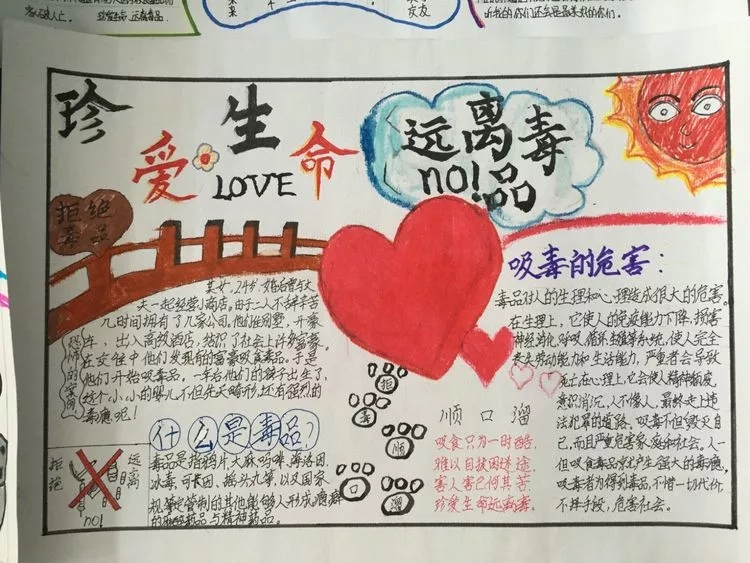 珍爱生命
LOVE
远离毒
no!品
拒绝
毒品
吸毒的危害:
某女,24岁,婚后曾与丈
夫一起经营小商店。由于二人不辞辛苦
几时间拥有了几家公司,他们住别墅,开豪
车,出入高级酒店,结识了社会上许多富豪。
在交往中他们发现有的富豪吸食毒品。于是
他们开始吸毒品。一年后他们的孩子出生了,
这个小小的婴儿不但先天畸形,还有强烈的
毒瘾呢!
什么是毒品?
毒品是指鸦片、大麻、吗啡、海洛因、
冰毒、可卡因、摇头丸等,以及国家
规定管制的其他能够人形成瘾癖
的麻醉药品与精神药品。
拒绝
远离
no!
拒
毒
顺
口
溜
顺口溜
吸食只为一时酷
难以自拔困迷途
害人害己何其苦
珍爱生命远离毒
毒品对人的生理和心理造成很大的危害。
在生理上,它使人的免疫能力下降,损害
神经消化、呼吸、循环生殖等系统,使人完全
丧失劳动能力和生活能力,严重者会导致
死亡在心理上,它会使人精神颓废,
意识消沉,人不像人,最终走上违
法犯罪的道路。吸毒不但毁灭自
己,而且严重危害家庭和社会。人一
但吸食毒品就会产生强大的毒瘾,
吸毒者为得到毒品,不惜一切代价,
不择手段,危害社会。
珍爱生命,远离毒品